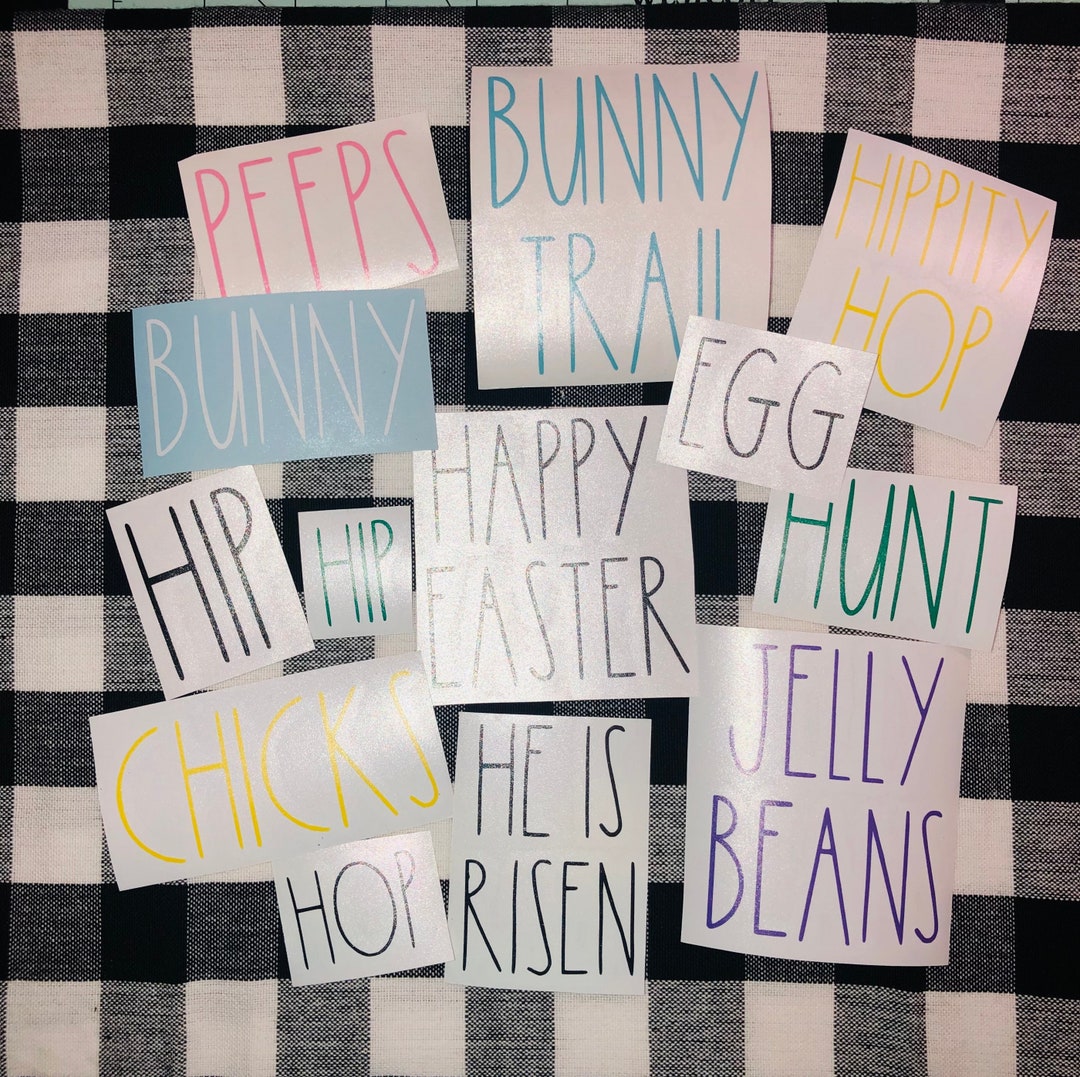 PEEPS
BUNNY
TRAIL
HIPPITY
HOP
BUNNY
EGG
HAPPY
EASTER
HIP
HIP
HUNT
CHICKS
HE IS
RISEN
JELLY
BEANS
HOP